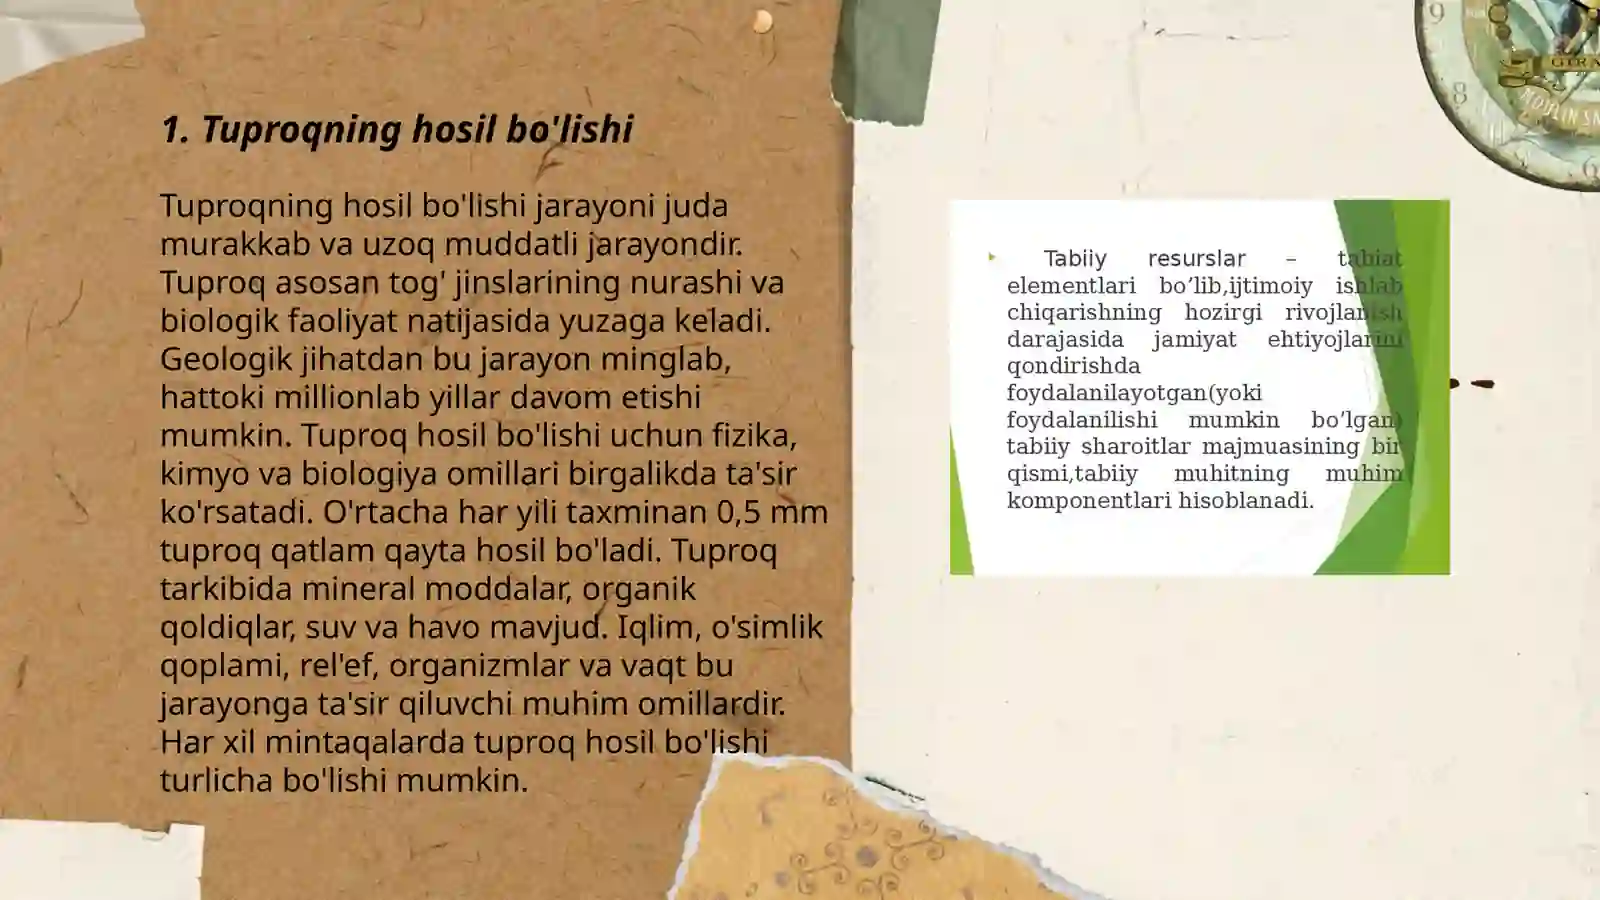 1. Tuproqning hosil bo'lishi
Tuproqning hosil bo'lishi jarayoni juda
murakkab va uzoq muddatli jarayondir.
Tuproq asosan tog' jinslarining nurashi va
biologik faoliyat natijasida yuzaga keladi.
Geologik jihatdan bu jarayon minglab,
hattoki millionlab yillar davom etishi
mumkin. Tuproq hosil bo'lishi uchun fizika,
kimyo va biologiya omillari birgalikda ta'sir
ko'rsatadi. O'rtacha har yili taxminan 0,5 mm
tuproq qatlam qayta hosil bo'ladi. Tuproq
tarkibida mineral moddalar, organik
qoldiqlar, suv va havo mavjud. Iqlim, o'simlik
qoplami, rel'ef, organizmlar va vaqt bu
jarayonga ta'sir qiluvchi muhim omillardir.
Har xil mintaqalarda tuproq hosil bo'lishi
turlicha bo'lishi mumkin.
Tabiiy resurslar – tabiat
elementlari bo’lib,ijtimoiy ishlab
chiqarishning hozirgi rivojlanish
darajasida jamiyat ehtiyojlarini
qondirishda
foydalanilayotgan(yoki
foydalanilishi mumkin bo’lgan)
tabiiy sharoitlar majmuasining bir
qismi,tabiiy muhitning muhim
komponentlari hisoblanadi.
9
8
6